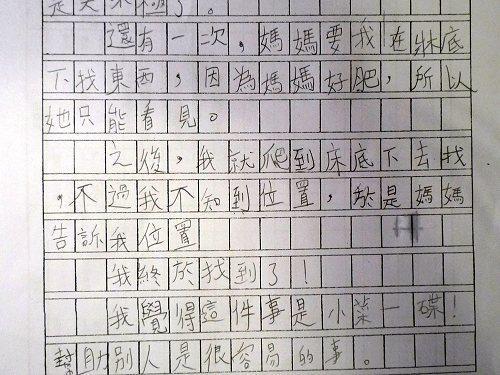 是大木極了。
還有一次，媽媽要我在牀底
下找東西，因為媽媽好肥，所以
她只能看見。
之後，我就爬到床底下去找
，不過我不知到位置，於是媽媽
告訴我位置
我終於找到了！
我覺得這件事是小菜一碟！
幫助別人是很容易的事。